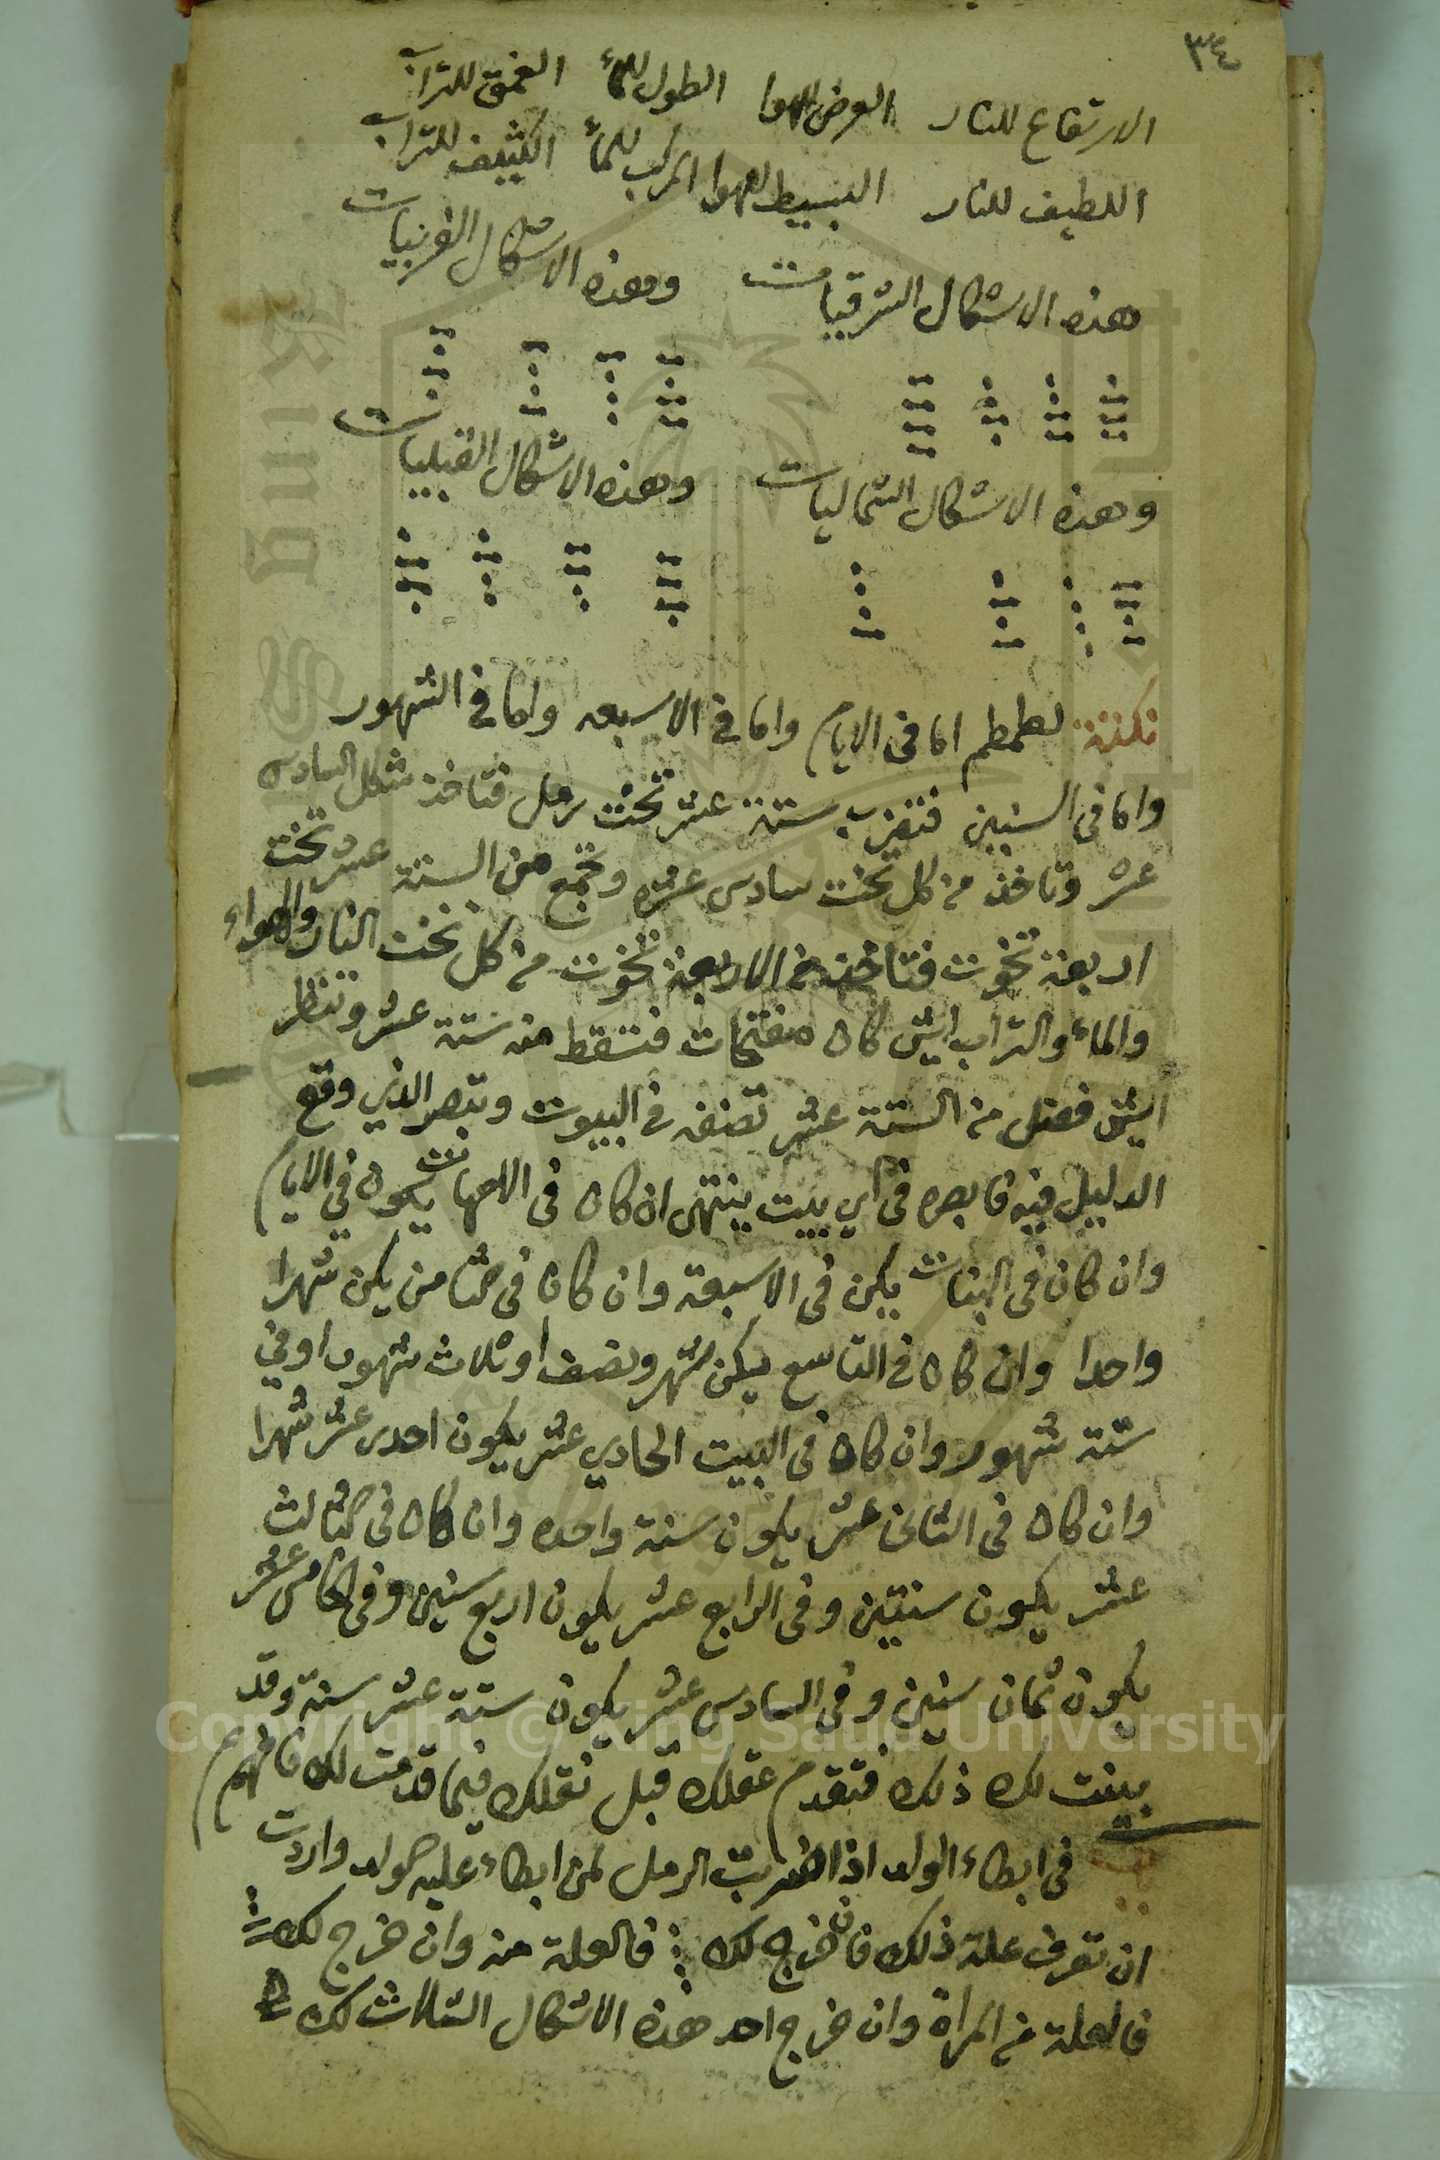 ٣٤
الارتفاع للنار العرض للهوا الطول للمأ العمق للتراب
اللطيف للنار البسيط للهوا المركب للمأ الكثيف للتراب
هذه الاشكال الشرقيات وهذه الاشكال الغربيات
وهذه الاشكال الشماليات وهذه الاشكال القبليات
نكتة لطمطم اما في الايام واما في الاسبعه واما في الشهور
واما في السنين فتضرب ستة عشر تخت رمل فتاخذ شكل السادس
عشر وتاخذ من كل تخت سادس عشره وتجمع من الستة عشر تخت
اربعة تخوت فتاخذ من الاربعة تخوت من كل تخت النار والهواء
والماء والتراب ايش كان مفتحات فتسقط منه ستة عشر وتنظر
ايش فضل من الستة عشر تصنفه في البيوت وتبصر الذي وقع
الدليل فيه فابصره في اي بيت ينتهى ان كان في الامهات يكون في الايام
وان كان في البنات يكن في الاسبعة وان كان في الثامن يكن شهرا
واحدا وان كان في التاسع يكن شهر ونصف او ثلاث شهور او في
ستة شهور وان كان في البيت الحادي عشر يكون احدى عشر شهرا
وان كان في الثانى عشر يكون سنة واحده وان كان في الثالث
عشر يكون سنتين وفي الرابع عشر يكون اربع سنين وفي الخامس عشر
يكون ثمان سنين وفي السادس عشر يكون ستة عشر سنة وقد
بينت لك ذلك فتقدم عقلك قبل نقلك فيما قدمت لك فافهم
في ابطاء الولد اذا ضربت الرمل لمن ابطاء عليه الولد واردت
ان تعرف علة ذلك فان خرج لك فالعلة منه وان خرج لك
فالعلة من المراة وان خرج احد هذه الاشكال الثلاث لك
Copyright © King Saud University